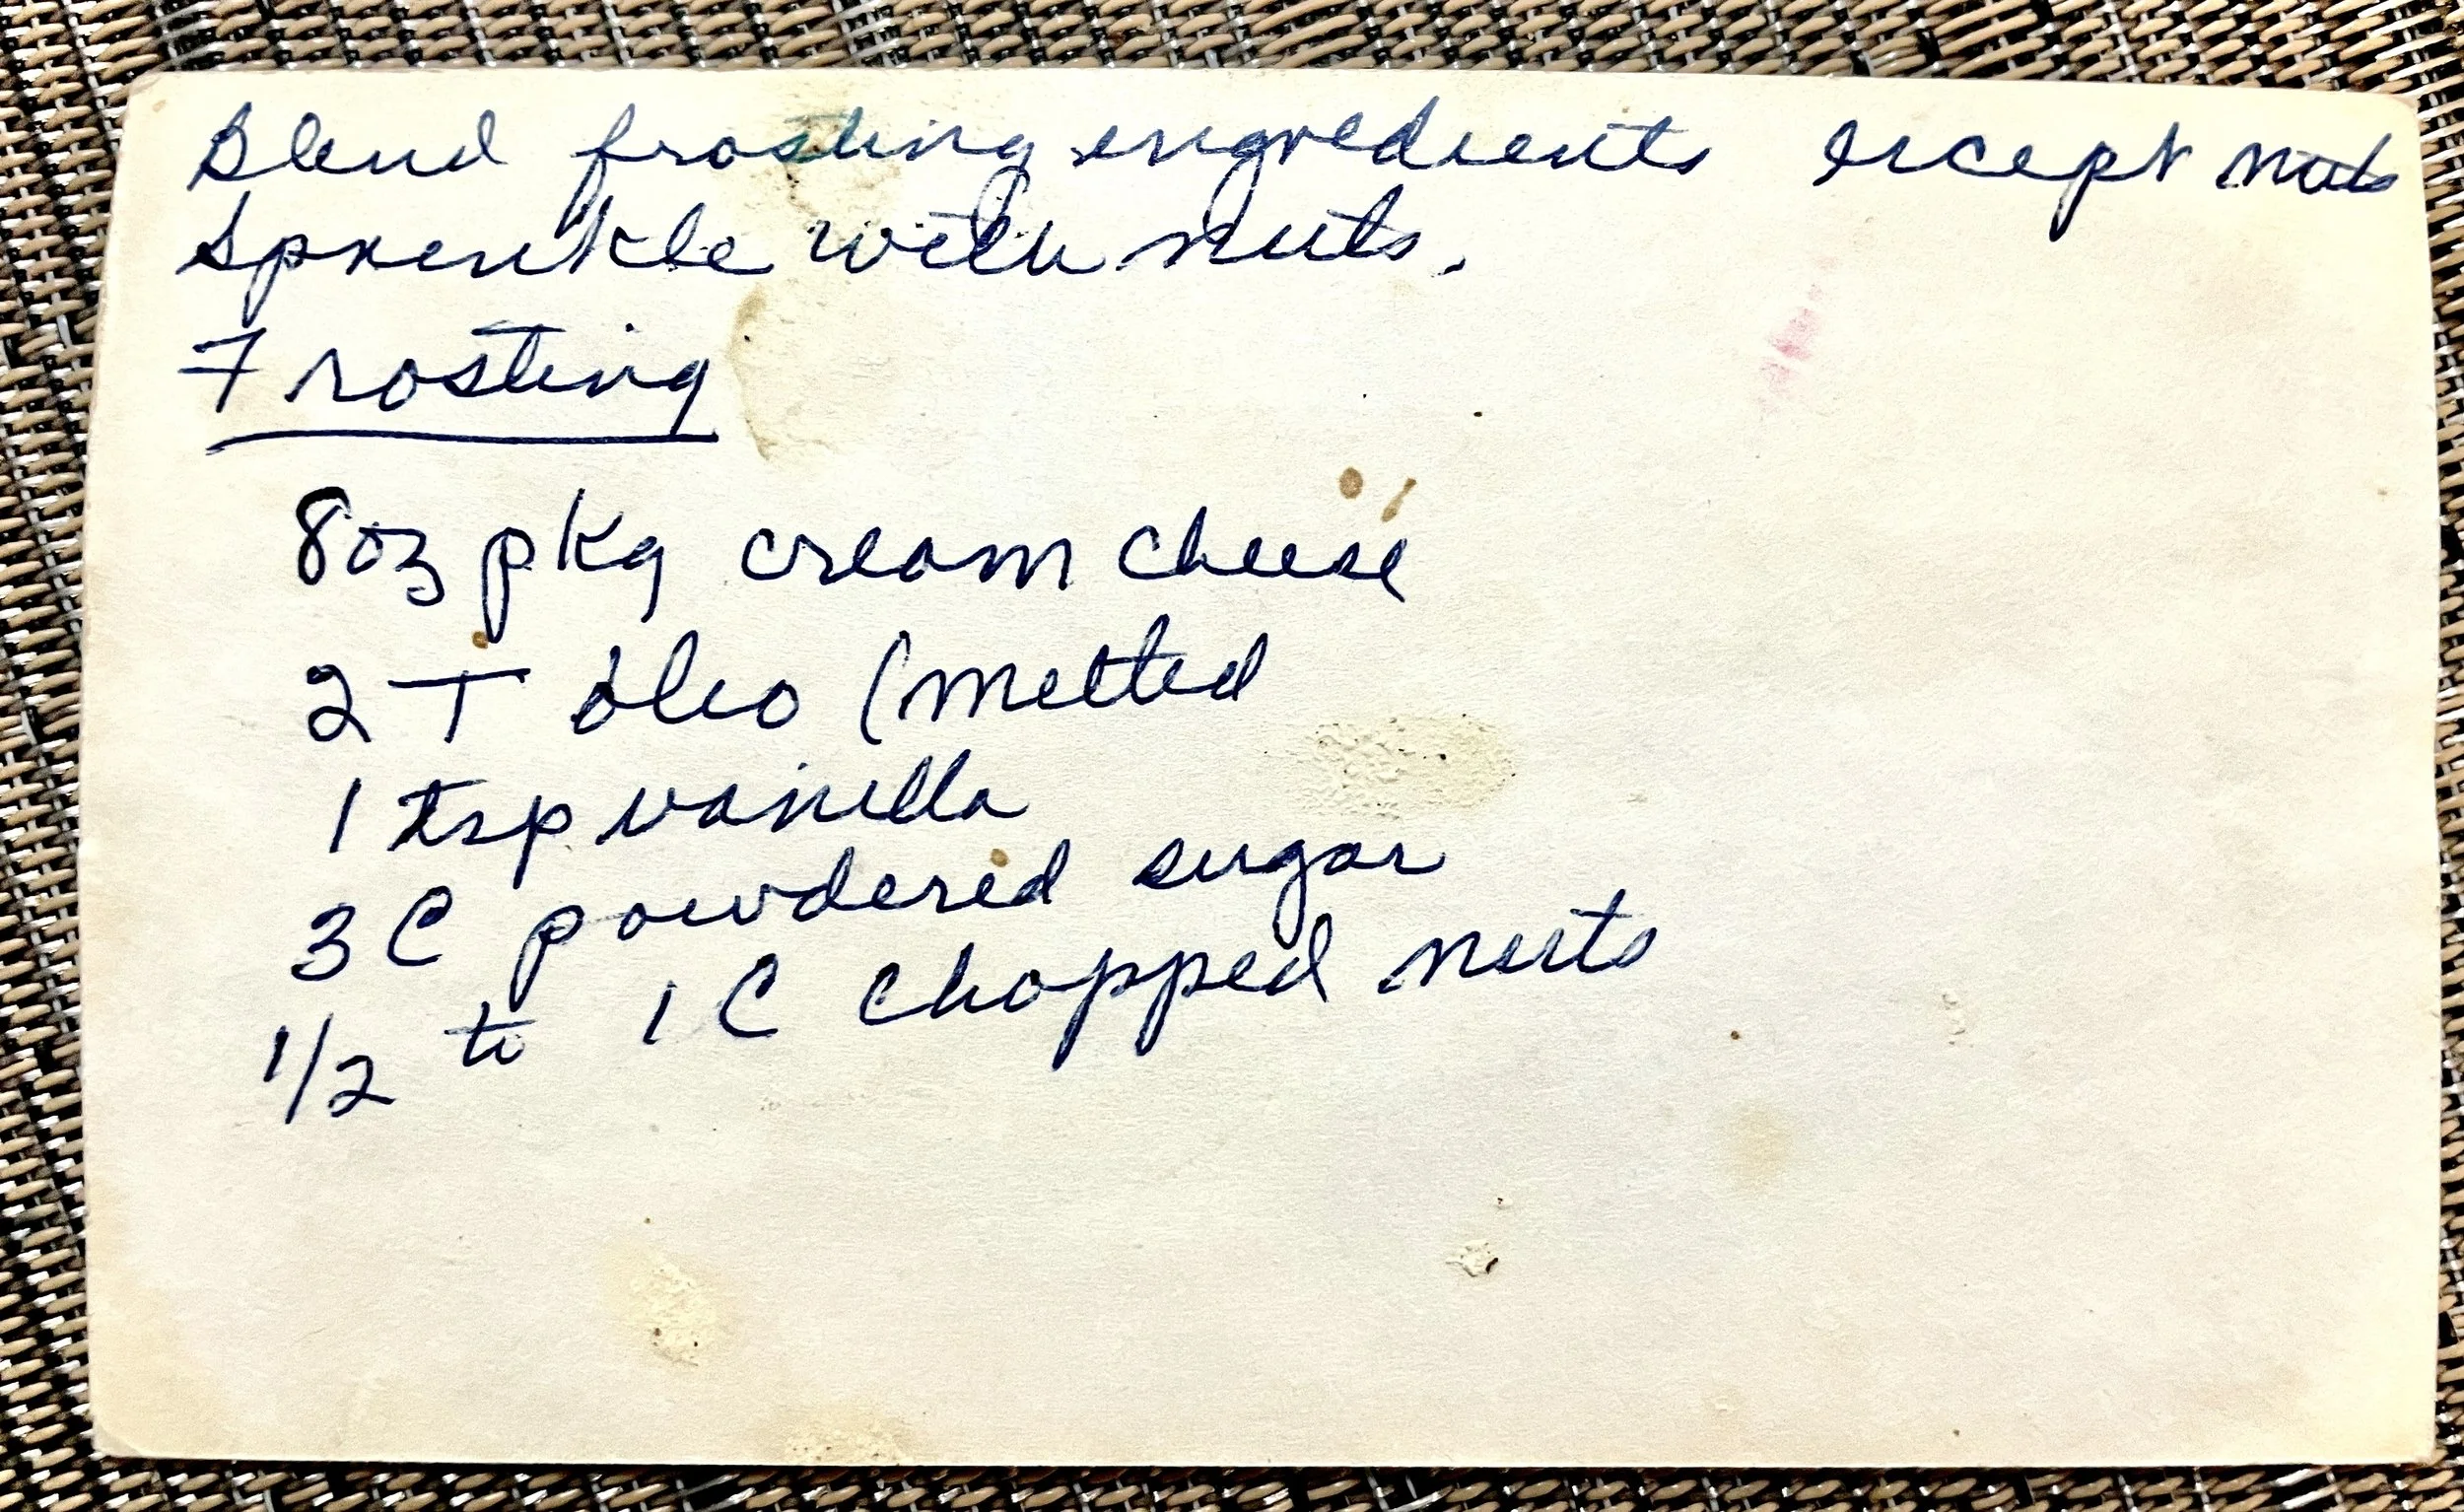 Blend frosting ingredients except nuts
Sprinkle with nuts.
Frosting
8oz pkg cream cheese
2 T oleo (melted
1 tsp vanilla
3 C powdered sugar
1/2 to 1 C chopped nuts